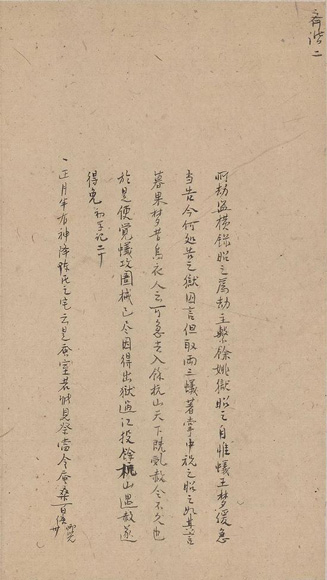 齊諧二
所劫盜橫錄昭之爲劫主繫餘姚獄昭之自惟蟻王夢緩急
當告今何処告之獄囚言但取兩三蟻著掌中祝之昭之如其言
暮果夢昔烏衣人云可急去入餘杭山天下既亂赦令不久也
於是便覺蟻攻囓械已尽因得出獄過江投餘杭山遇赦遂
得免 初學記二十
一正月半有神降陳氏之宅云是蚕室若能見祭當令蚕桑百倍